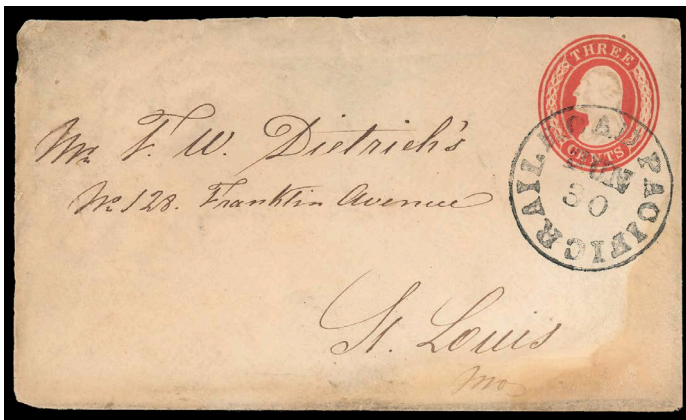 THREE
CENTS
PACIFIC RAIL ROAD
JUN
30
Mr. F. W. Dietrich's
No. 128. Franklin Avenue
St. Louis
Mo